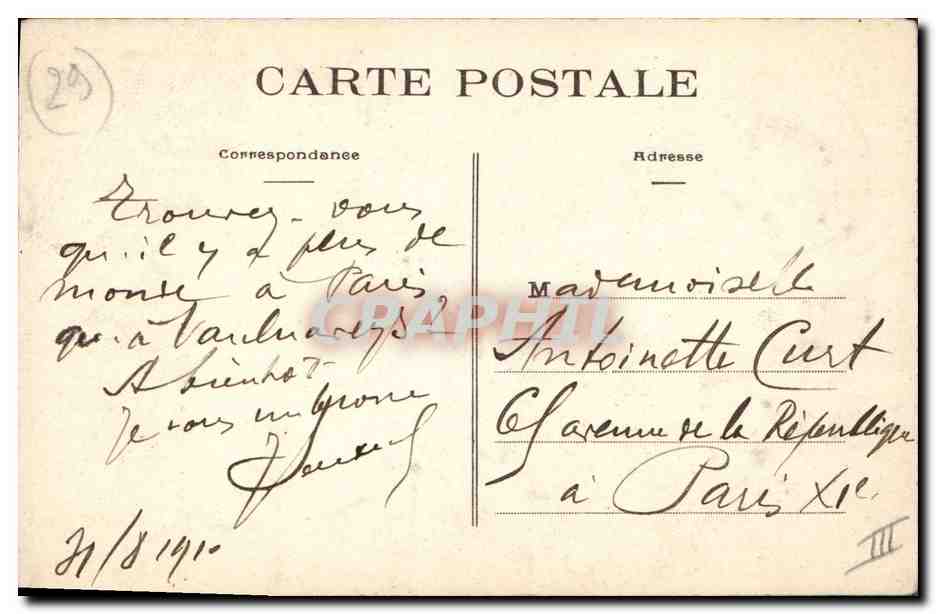 29
CARTE POSTALE
Correspondance
Adresse
Trouvez-vous
qu'il y a plus de
monde à Paris
qu'à Vaulnaveys?
A bientôt
Je vous embrasse
31/8 1910
Mademoiselle
Antoinette Curt
avenue de la République
à Paris XIe.
III
CPAPHIL